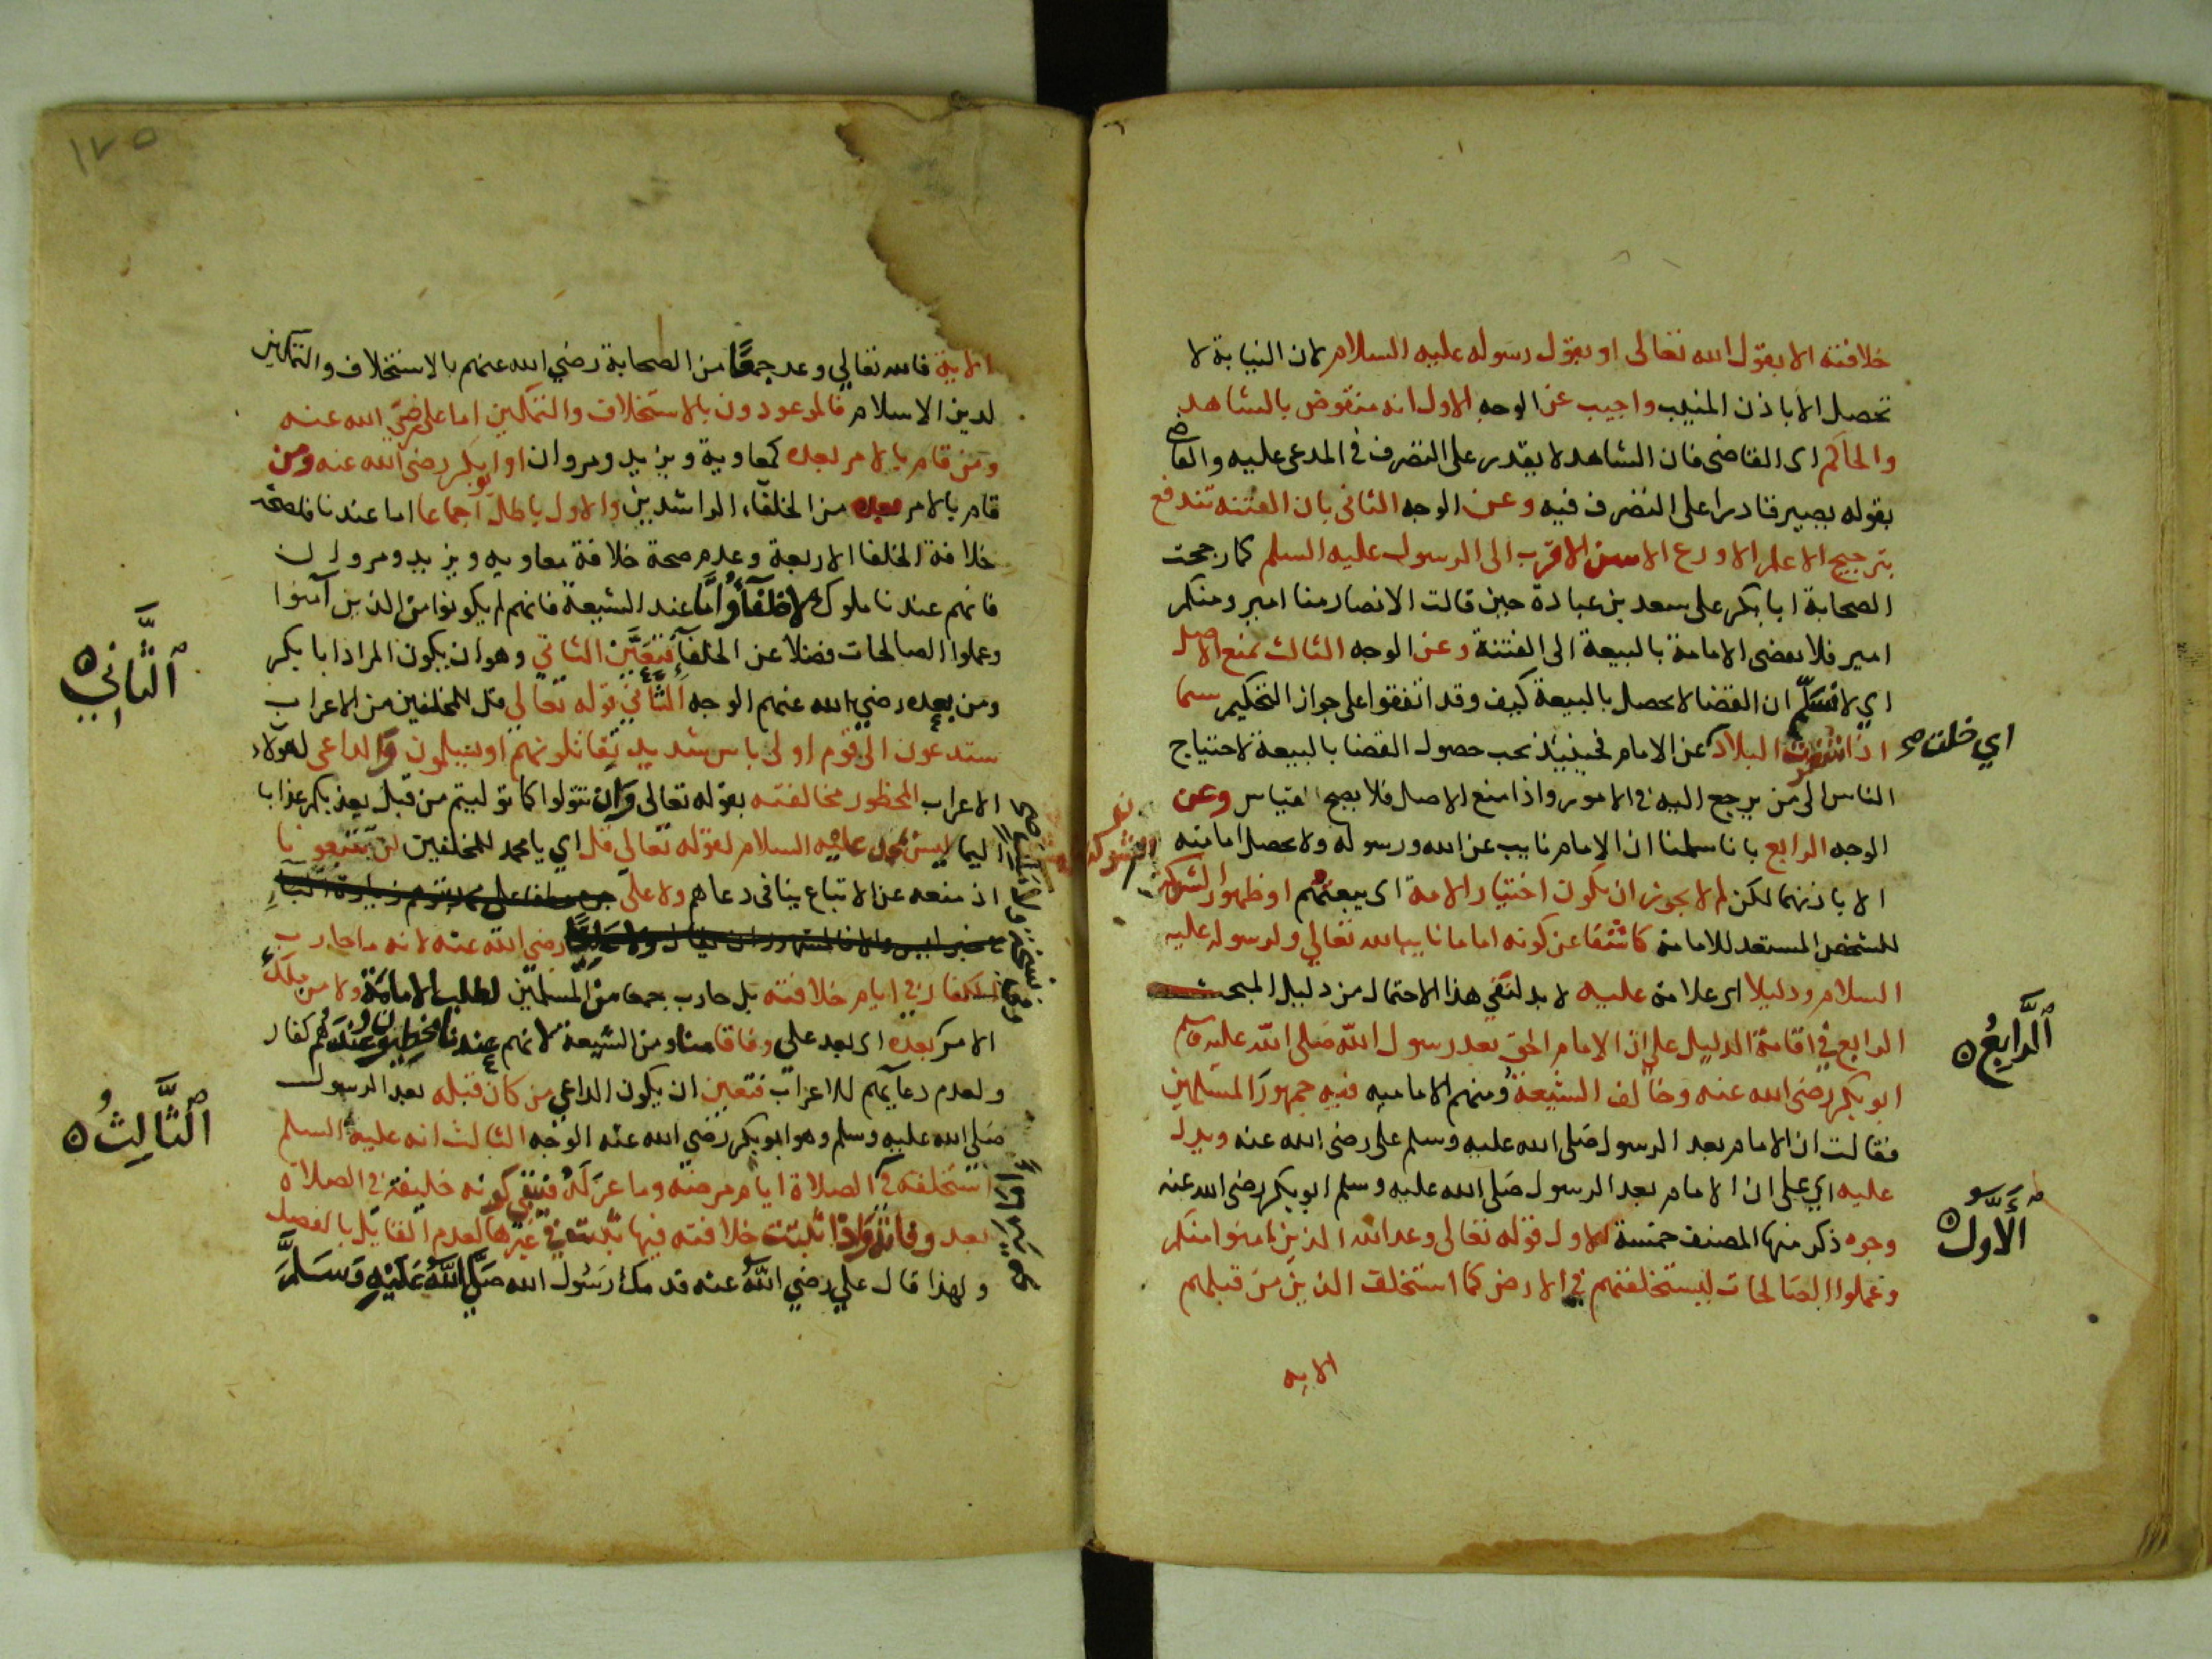 خلافته الا بقول الله تعالى او بقول رسوله عليه السلام لان النيابة لا
تحصل الا باذن المنيب واجيب عن الوجه الاول انه منقوض بالشاهد
والحاكم اى القاضى فان الشاهد لا يقدر على التصرف فى المدعى عليه والقاضى
بقوله يصير قادرا على التصرف فيه وعن الوجه الثانى بان الفتنه تندفع
بترجيح الاعلم الاورع الاسن الاقرب الى الرسول عليه السلم كما رجحت
الصحابة ابا بكر على سعد بن عبادة حين قالت الانصار منا امير ومنكم
امير فلا يفضى الامامة بالبيعة الى الفتنة وعن الوجه الثالث بمنع الاصل
اي لا نسلم ان القضا لا يحصل بالبيعة كيف وقد اتفقوا على جواز التحكيم سيما
اذا البلاد عن الامام فحينيذ يجب حصول القضا بالبيعة لاحتياج
اي خلت صح
الناس الى من يرجع اليه فى الامور واذا منع الاصل فلا يصح القياس وعن
الوجه الرابع بانا سلمنا ان الامام نايب عن الله ورسوله ولا يحصل امامته
الا باذنهما لكن لم لا يجوز ان يكون اختيار الامة اى بيعتهم او ظهور الشوكة
للشخص المستعد للامامة كاشفا عن كونه اماما نايبا لله تعالي ولرسوله عليه
السلام ودليلا اى علامة عليه لا بد لنفي هذا الاحتمال من دليل المبحث
الرابع فى اقامة الدليل علي ان الامام الحق بعد رسول الله صلى الله عليه وسلم
الرابع
ابو بكر رضى الله عنه وخالف الشيعة ومنهم الامامية فيه جمهور المسلمين
فقالت ان الامام بعد الرسول صلى الله عليه وسلم على رضى الله عنه ويدل
عليه اي على ان الامام بعد الرسول صلى الله عليه وسلم ابو بكر رضى الله عنه
وجوه ذكر منها المصنف خمسة الاول قوله تعالى وعد الله الذين امنوا منكم
الاول
وعملوا الصالحات ليستخلفنهم في الارض كما استخلف الذين من قبلهم
الايه
١٧٥
الاية فالله تعالي وعد جمعا من الصحابة رضي الله عنهم بالاستخلاف والتمكين
لدين الاسلام فالموعودون بالاستخلاف والتمكين اما على رضي الله عنه
ومن قام بالامر بعده كمعاوية ويزيد ومروان او ابو بكر رضى الله عنه ومن
قام بالامر بعده من الخلفاء الراشدين والاول باطل اجماعا اما عندنا فلصحة
خلافة الخلفا الاربعة وعدم صحة خلافة معاويه ويزيد ومروان
فانهم عندنا ملوك لا خلفآء واما عند الشيعة فانهم لم يكونوا من الذين آمنوا
وعملوا الصالحات فضلا عن الخلفآء فتعين الثاني وهو ان يكون المراد ابا بكر
ومن بعده رضي الله عنهم الوجه الثاني قوله تعالي قل للمخلفين من الاعراب
الثاني
ستدعون الى قوم اولى باس شديد تقاتلونهم او يسلمون والداعى لهولاء
الاعراب المحظور مخالفته بقوله تعالى وان تتولوا كما توليتم من قبل يعذبكم عذابا
اليما ليس محمد عليه السلام لقوله تعالي قل اي يا محمد للمخلفين لن تتبعونا
اذ منعه عن الاتباع ينافى دعاهم ولا علي
رضي الله عنه لانه ما حارب
الكفار في ايام خلافته بل حارب جمعا من المسلمين لطلب الامامة ولا من ملك
الامر بعده اى بعد علي وفاقا منا ومن الشيعة لانهم عندنا مخطيون وعندهم كفار
ولعدم دعايهم للاعراب فتعين ان يكون الداعي من كان قبله بعد الرسول
صلى الله عليه وسلم وهو ابو بكر رضي الله عنه الوجه الثالث انه عليه السلم
الثالث
استخلفه في الصلاة ايام مرضه وما عزله فبقي كونه خليفة فى الصلاة
بعد وفاته واذا ثبتت خلافته فيها ثبتت في غيرها لعدم القايل بالفصل
ولهذا قال علي رضي الله عنه قدمك رسول الله صلي الله عليه وسلم